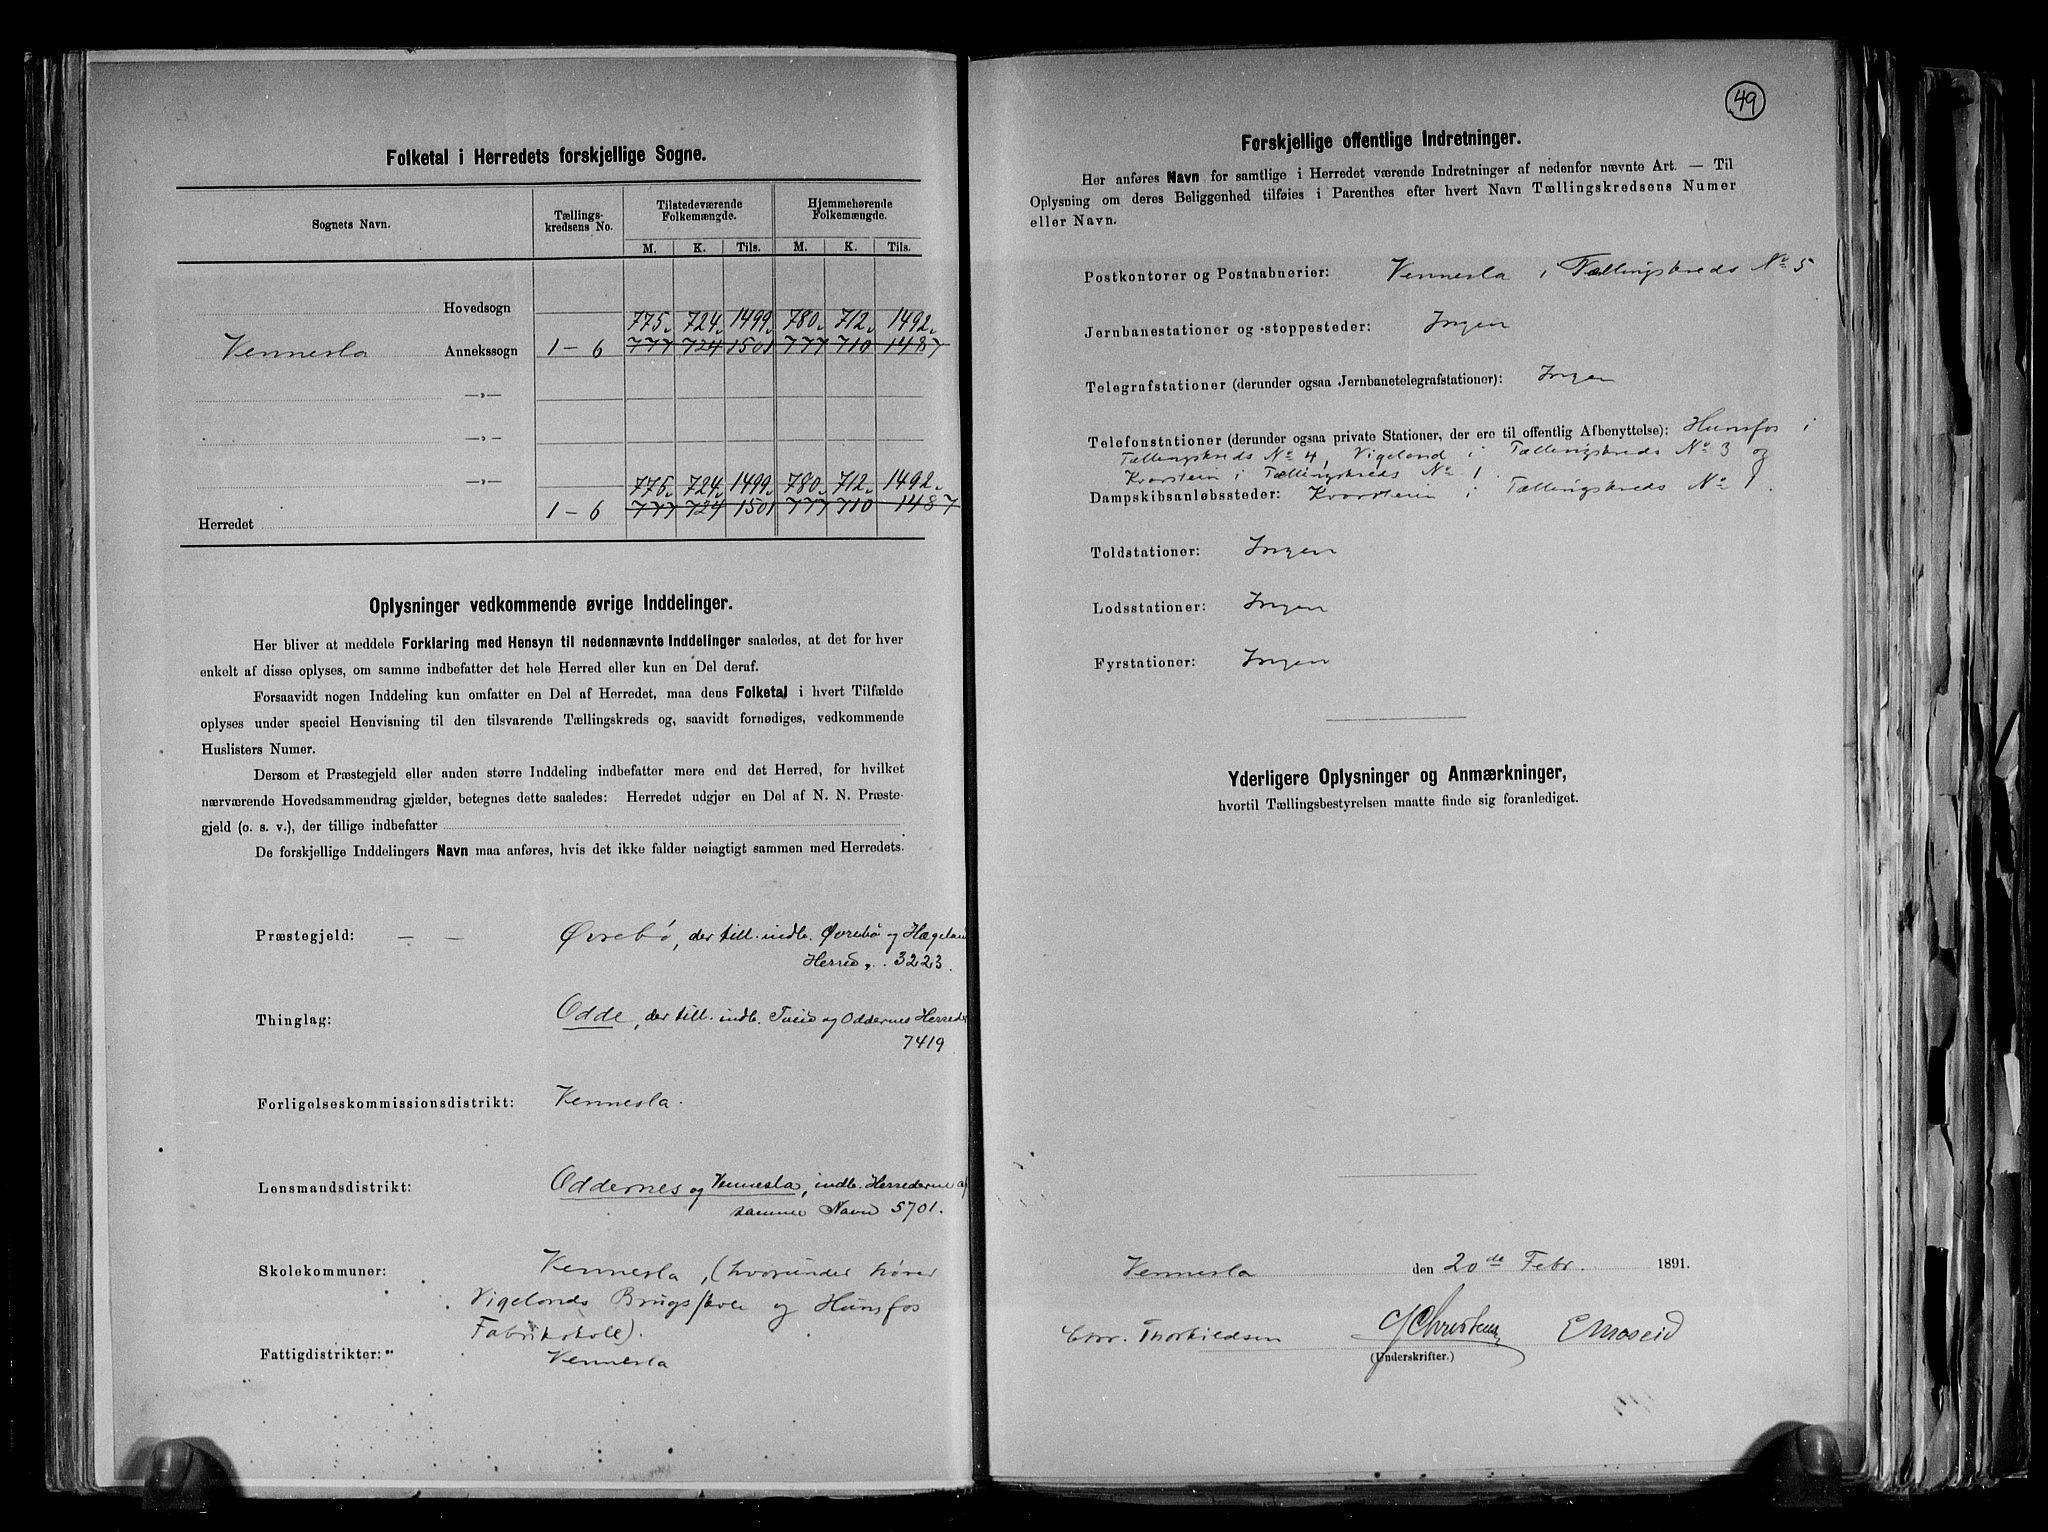 Folketal i Herredets forskjellige Sogne.
Sognets Navn. Tællings-kredsens No. Tilstedeværende Folkemængde. Hjemmehørende Folkemængde.
M. K. Tils. M. K. Tils.
Hovedsogn
775. 724. 1499. 780. 712. 1492.
Vennesla Annekssogn 1-6 777 724 1501 777 710 1487
—„—
—„—
—„—
775. 724. 1499. 780. 712. 1492.
Herredet 1-6 777 724 1501 777 710 1487
Oplysninger vedkommende øvrige Inddelinger.
Her bliver at meddele Forklaring med Hensyn til nedennævnte Inddelinger saaledes, at det for hver
enkelt af disse oplyses, om samme indbefatter det hele Herred eller kun en Del deraf.
Forsaavidt nogen Inddeling kun omfatter en Del af Herredet, maa dens Folketal i hvert Tilfælde
oplyses under speciel Henvisning til den tilsvarende Tællingskreds og, saavidt fornødiges, vedkommende
Huslisters Numer.
Dersom et Præstegjeld eller anden større Inddeling indbefatter mere end det Herred, for hvilket
nærværende Hovedsammendrag gjælder, betegnes dette saaledes: Herredet udgjør en Del af N. N. Præste-
gjeld (o. s. v.), der tillige indbefatter
De forskjellige Inddelingers Navn maa anføres, hvis det ikke falder nøiagtigt sammen med Herredets.
Præstegjeld: — — Øvrebø, der till. indb. Øvrebø og Hægeland
Herred. 3223.
Thinglag: Odde, der till. indb. Tveid og Oddernes Herreder
7419
Forligelseskommissionsdistrikt: Vennesla.
Lensmandsdistrikt: Oddernes og Vennesla, indb. Herrederne af
samme Navn 5701.
Skolekommuner: Vennesla, (hvorunder hører
Vigelands Brugsskole og Hunsfos
Fabrikskole).
Fattigdistrikter: Vennesla
49
Forskjellige offentlige Indretninger.
Her anføres Navn for samtlige i Herredet værende Indretninger af nedenfor nævnte Art. — Til
Oplysning om deres Beliggenhed tilføies i Parenthes efter hvert Navn Tællingskredsens Numer
eller Navn.
Postkontorer og Postaabnerier: Vennesla i Tællingskreds No 5
Jernbanestationer og -stoppesteder: Ingen
Telegrafstationer (derunder ogsaa Jernbanetelegrafstationer): Ingen
Telefonstationer (derunder ogsaa private Stationer, der ere til offentlig Afbenyttelse): Hunsfos i
Tællingskreds No 4, Vigeland i Tællingskreds No 3 og
Kvarstein i Tællingskreds No 1.
Dampskibsanløbssteder: Kvarstein i Tællingskreds No 1.
Toldstationer: Ingen
Lodsstationer: Ingen
Fyrstationer: Ingen
Yderligere Oplysninger og Anmærkninger,
hvortil Tællingsbestyrelsen maatte finde sig foranlediget.
Vennesla den 20de Febr. 1891.
Chr. Thorkildsen J Christensen E Moseid
(Underskrifter.)